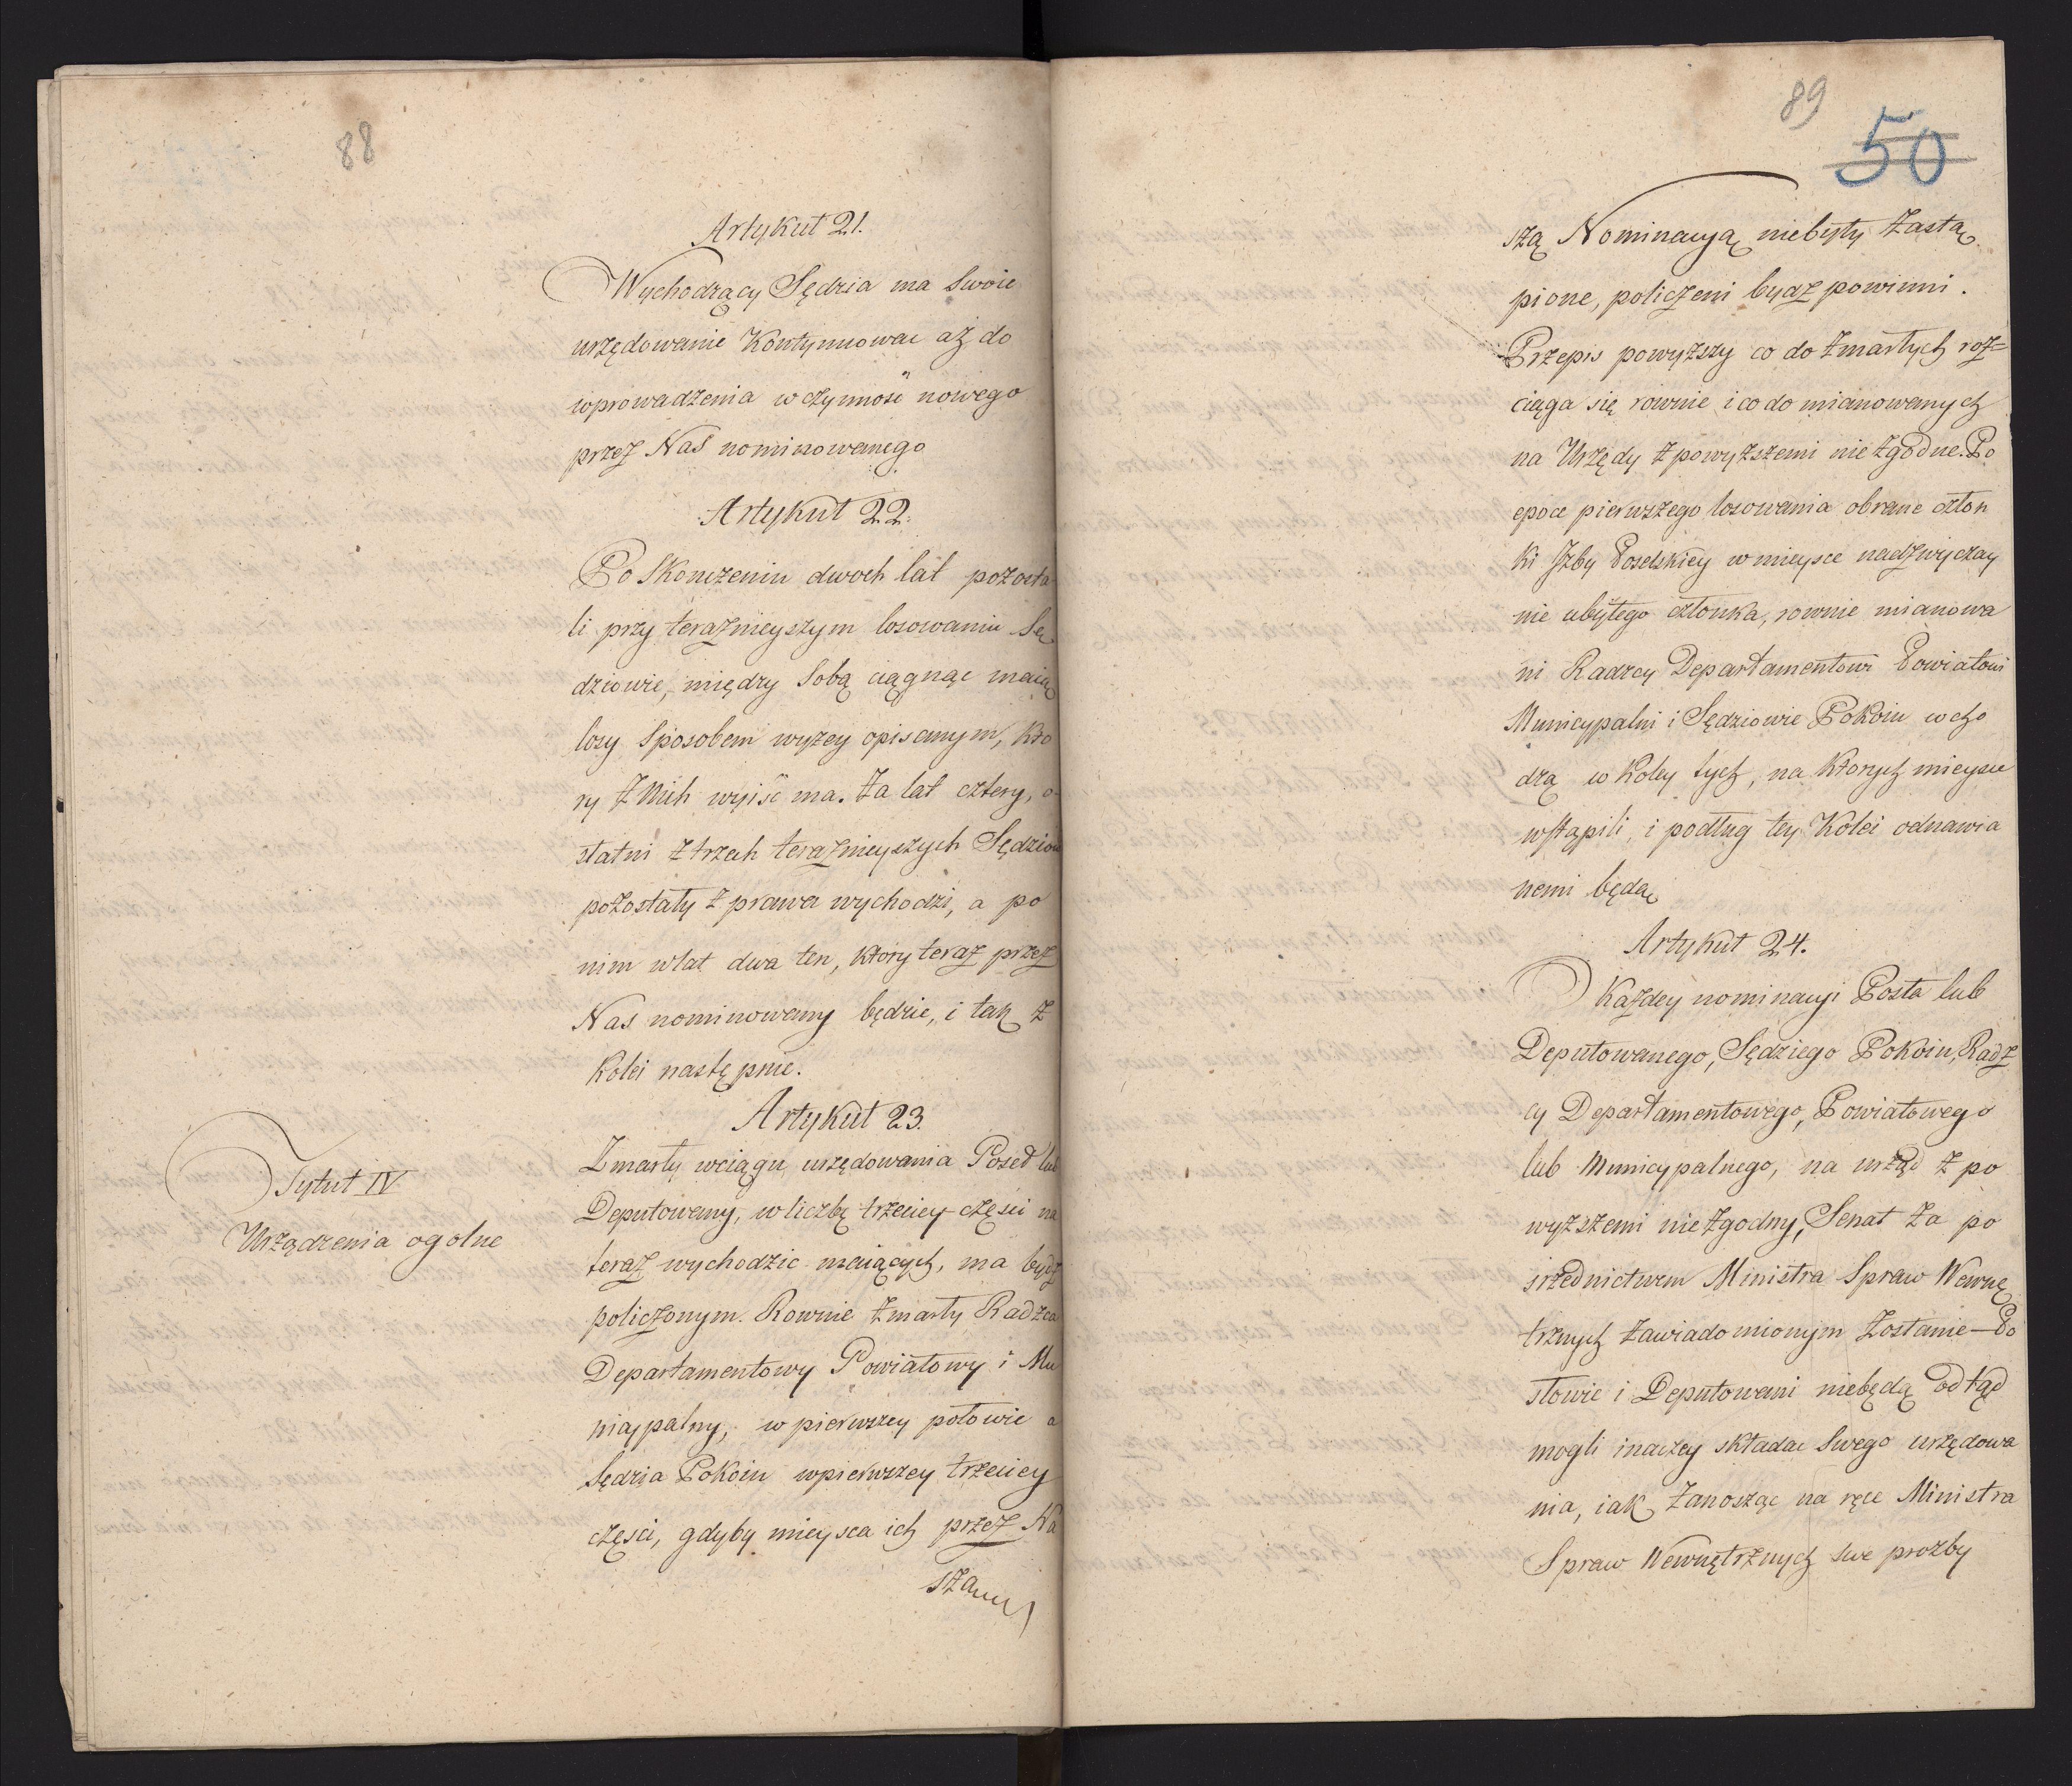 88
Artykuł 21.
Wychodzący Sędzia ma swoie
urzędowanie kontynuowac aż do
wprowadzenia w czynność nowego
przez Nas nominowanego
Artykuł 22.
Po skonczeniu dwoch lat pozosta
li przy teraznieyszym losowaniu Sę
dziowie, między sobą ciągnąc maią
losy sposobem wyżey opisanym, kto
ry z nich wyiść ma. Za lat cztery, o-
statni z trzech teraznieyszych Sędziow
pozostały z prawa wychodzi, a po
nim w lat dwa ten, ktory teraz przez
Nas nominowany będzie, i tak z
kolei następnie.
Artykuł 23.
Tytuł IV
Urządzenia ogolne
Zmarły w ciągu urzędowania Poseł lub
Deputowany, w liczbę trzeciey części na
teraz wychodzic maiących, ma bydz
policzonym. Rownie zmarły Radzca
Departamentowy Powiatowy i Mu
nicypalny, w pierwszey połowie a
Sędzia Pokoiu w pierwszey trzeciey
części, gdyby mieysca ich przez Na
szą
89
50
szą Nominacyą niebyły zastą
pione, policzeni bydz powinni.
Przepis powyższy co do zmarłych roz=
ciąga się rownie i co do mianowanych
na Urzędy z powyższemi niezgodne. Po
epoce pierwszego losowania obrane człon
ki Izby Poselskiey w mieysce nadzwyczay
nie ubyłego członka, rownie mianowa
ni Radzcy Departamentowi Powiatowi
Municypalni i Sędziowie Pokoiu wcho
dzą w koley tych, na ktorych mieysce
wstąpili, i podług tey kolei odnawia
nemi będą
Artykuł 24.
O każdey nominacyi Posła lub
Deputowanego, Sędziego Pokoiu, Radz
cy Departamentowego, Powiatowego
lub Municypalnego, na urząd z po
wyższemi niezgodny, Senat za po
srzednictwem Ministra Spraw Wewnę
trznych zawiadomionym zostanie — Po
słowie i Deputowani niebędą odtąd
mogli inaczey składac swego urzędowa
nia, iak zanosząc na ręce Ministra
Spraw Wewnętrznych swe prozby